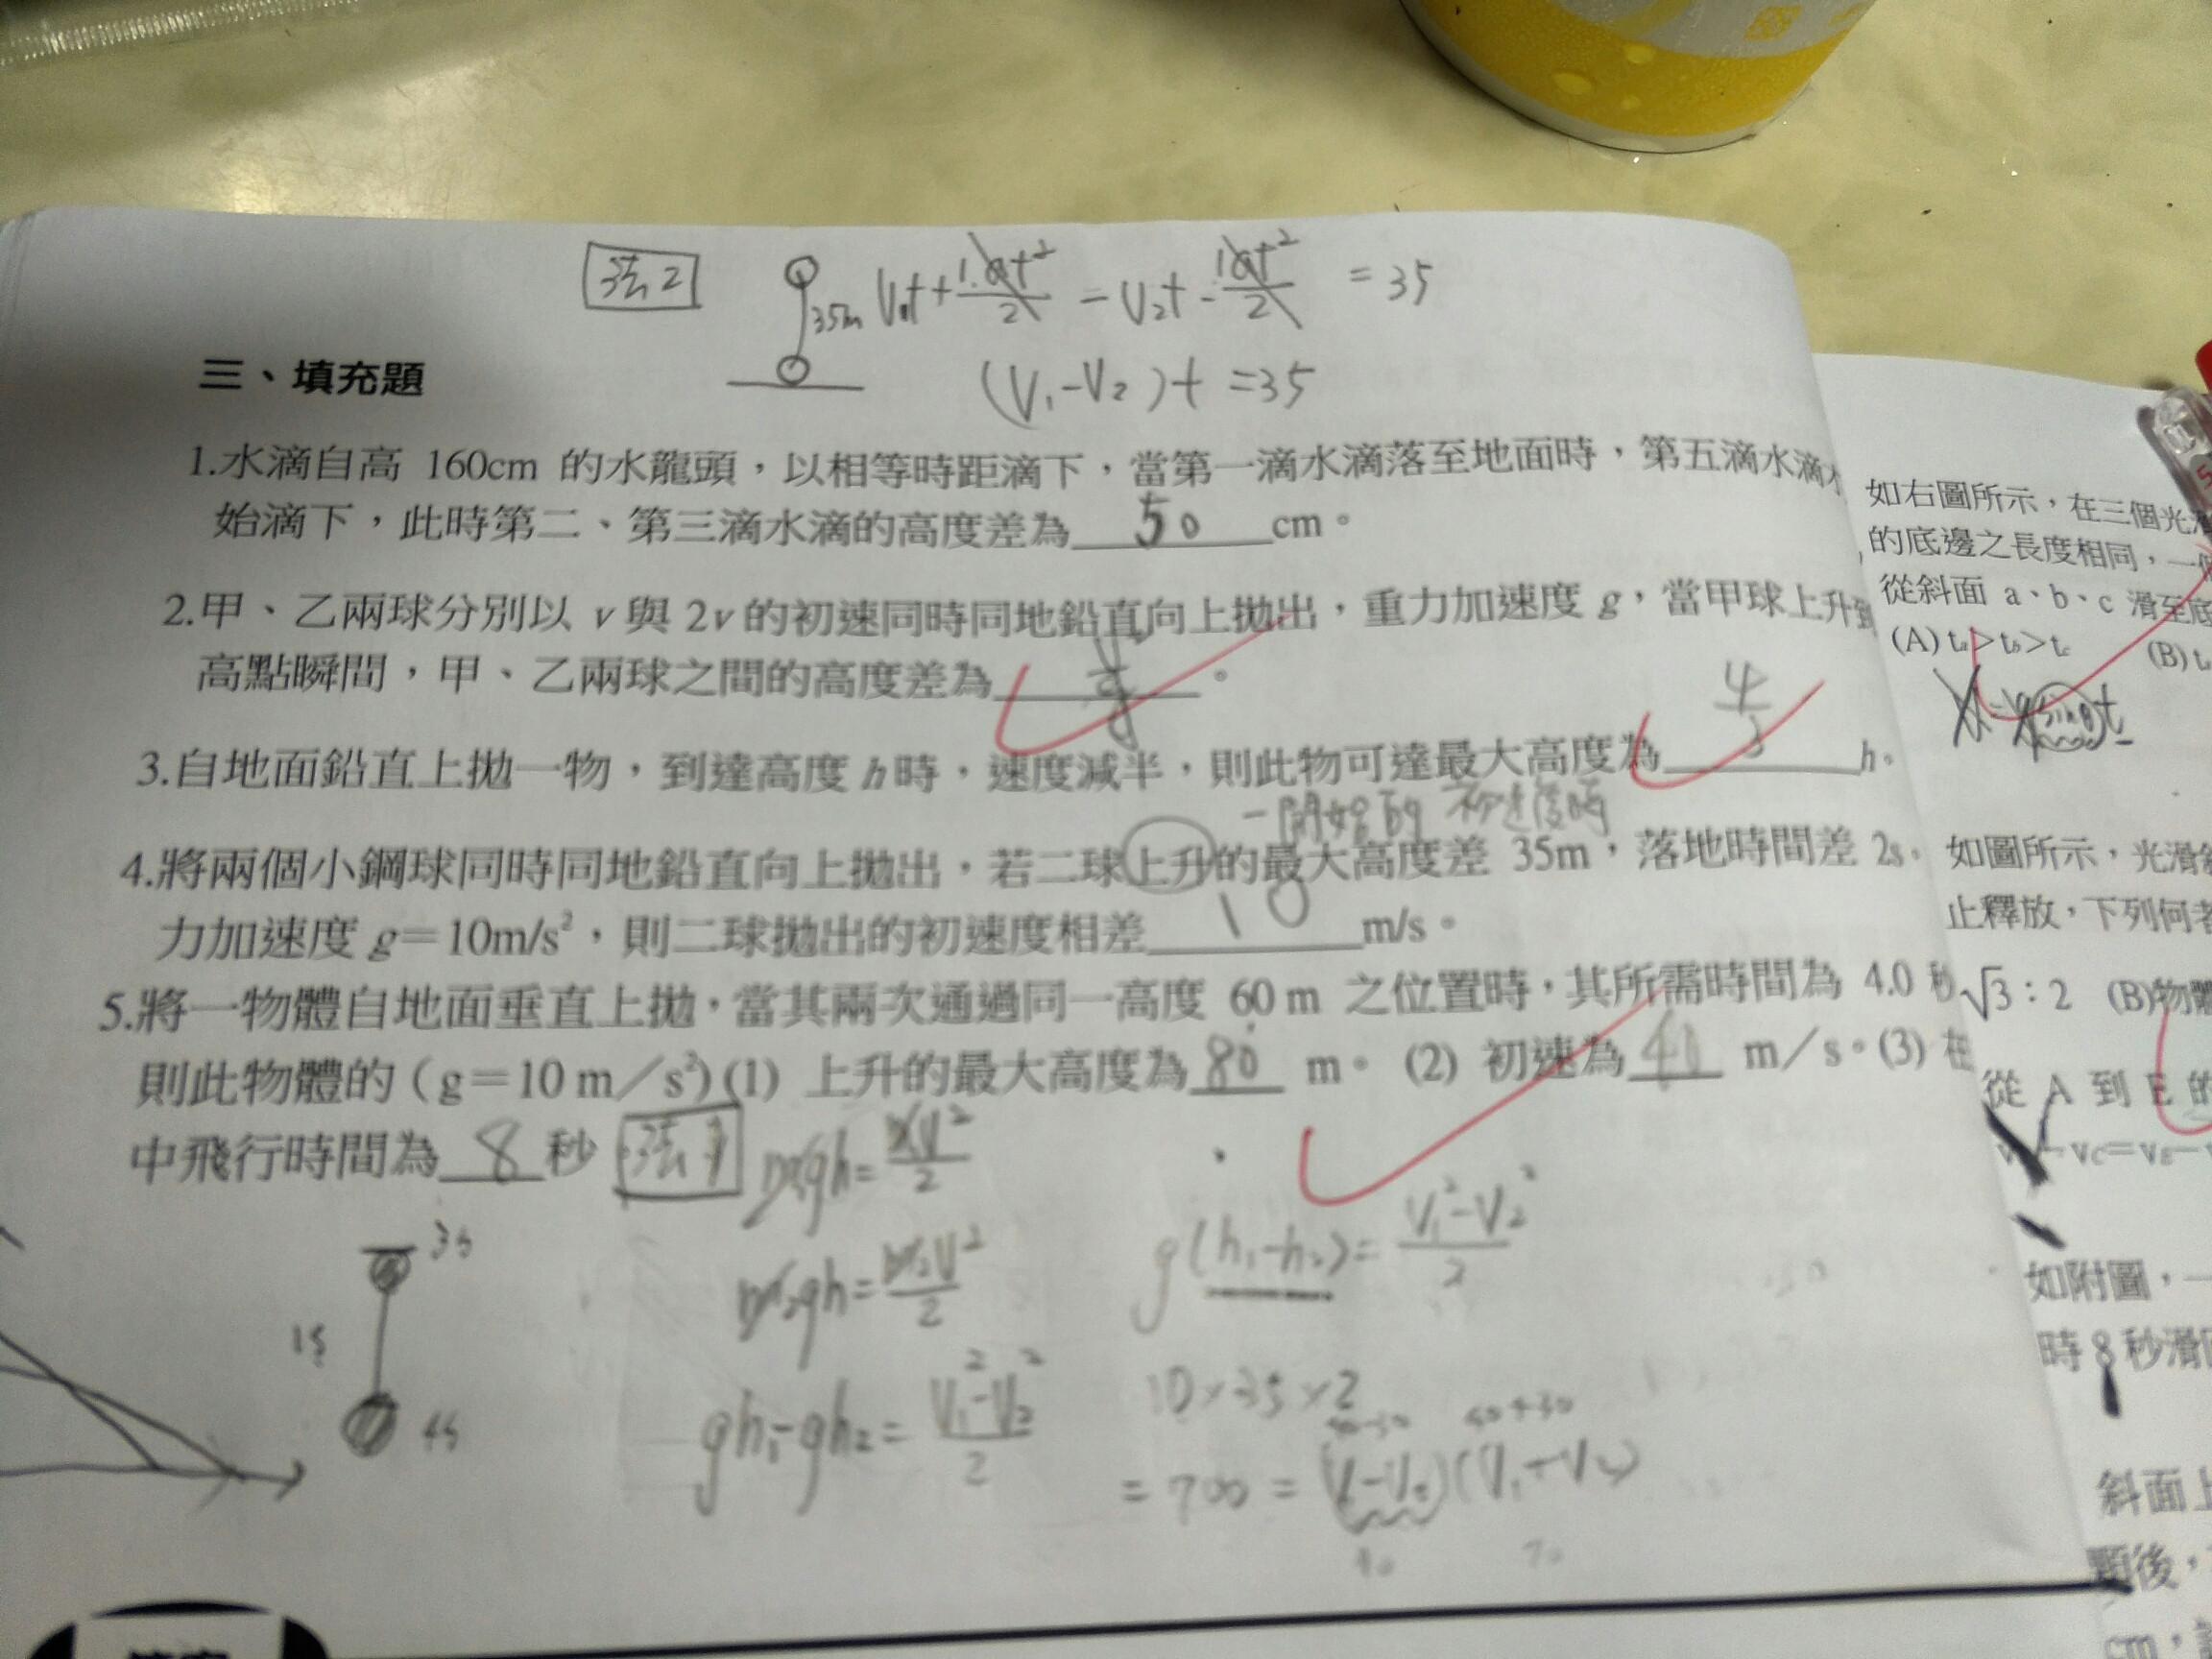 法2
35m V₁t + 1.at²/2 - V₂t - 1at²/2 = 35
(V₁-V₂)t = 35
三、填充題
1.水滴自高 160cm 的水龍頭，以相等時距滴下，當第一滴水滴落至地面時，第五滴水滴
始滴下，此時第二、第三滴水滴的高度差為 50 cm。
2.甲、乙兩球分別以 v 與 2v 的初速同時同地鉛直向上拋出，重力加速度 g，當甲球上升到
高點瞬間，甲、乙兩球之間的高度差為 V²/g 。
3.自地面鉛直上拋一物，到達高度 h 時，速度減半，則此物可達最大高度為 4/3 h。
一開始的 初速度
4.將兩個小鋼球同時同地鉛直向上拋出，若二球上升的最大高度差 35m，落地時間差 2s。
力加速度 g＝10m/s²，則二球拋出的初速度相差 10 m/s。
5.將一物體自地面垂直上拋，當其兩次通過同一高度 60 m 之位置時，其所需時間為 4.0 秒
則此物體的（g＝10 m／s²）(1) 上升的最大高度為 80 m。 (2) 初速為 40 m／s。(3) 在
中飛行時間為 8 秒
法1
m₁gh = m₁V²/2
m₂gh = m₂V²/2
gh₁-gh₂ = V₁²-V₂²/2
g(h₁-h₂) = V₁²-V₂²/2
10×35×2
40-30 40+30
= 700 = (V₁-V₂)(V₁+V₂)
10 70
3s
1s
4s
如右圖所示，在三個光滑
的底邊之長度相同，一個
從斜面 a、b、c 滑至底
(A) tₐ＞t_b＞t_c (B) t
如圖所示，光滑斜
止釋放，下列何者
√3：2 (B)物體
從 A 到 E 的
vc＝vE－
如附圖，一
時 8 秒滑
斜面上
顆後，
cm，